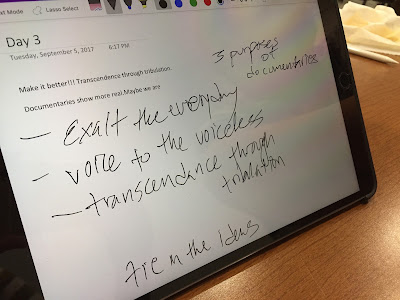 Text Mode
Lasso Select
Day 3
Tuesday, September 5, 2017 6:17 PM
Make it better!!! Transcendence through tribulation.
Documentaries show more real.Maybe we are
3 purposes
of
documentaries
- Exalt the everyday
- voice to the voiceless
- transcendance through
tribulation
in the Ideas